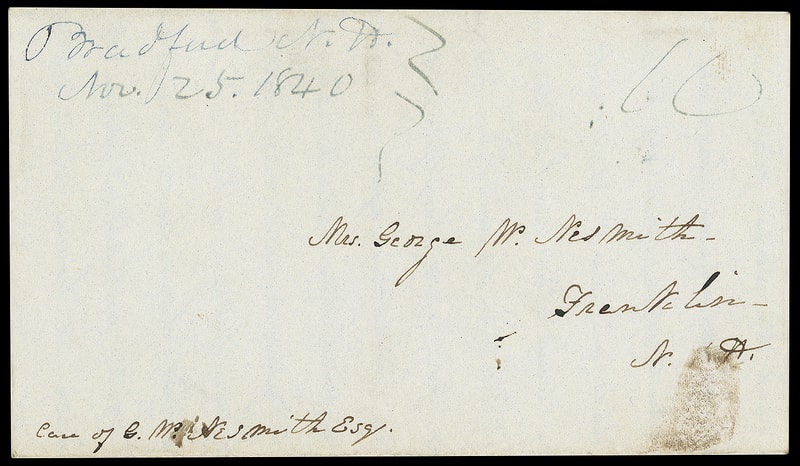 Bradford N. H.
Nov. 25. 1840
Mrs. George W. Nesmith -
Franklin -
N. H.
Care of G. W. Nesmith Esq.